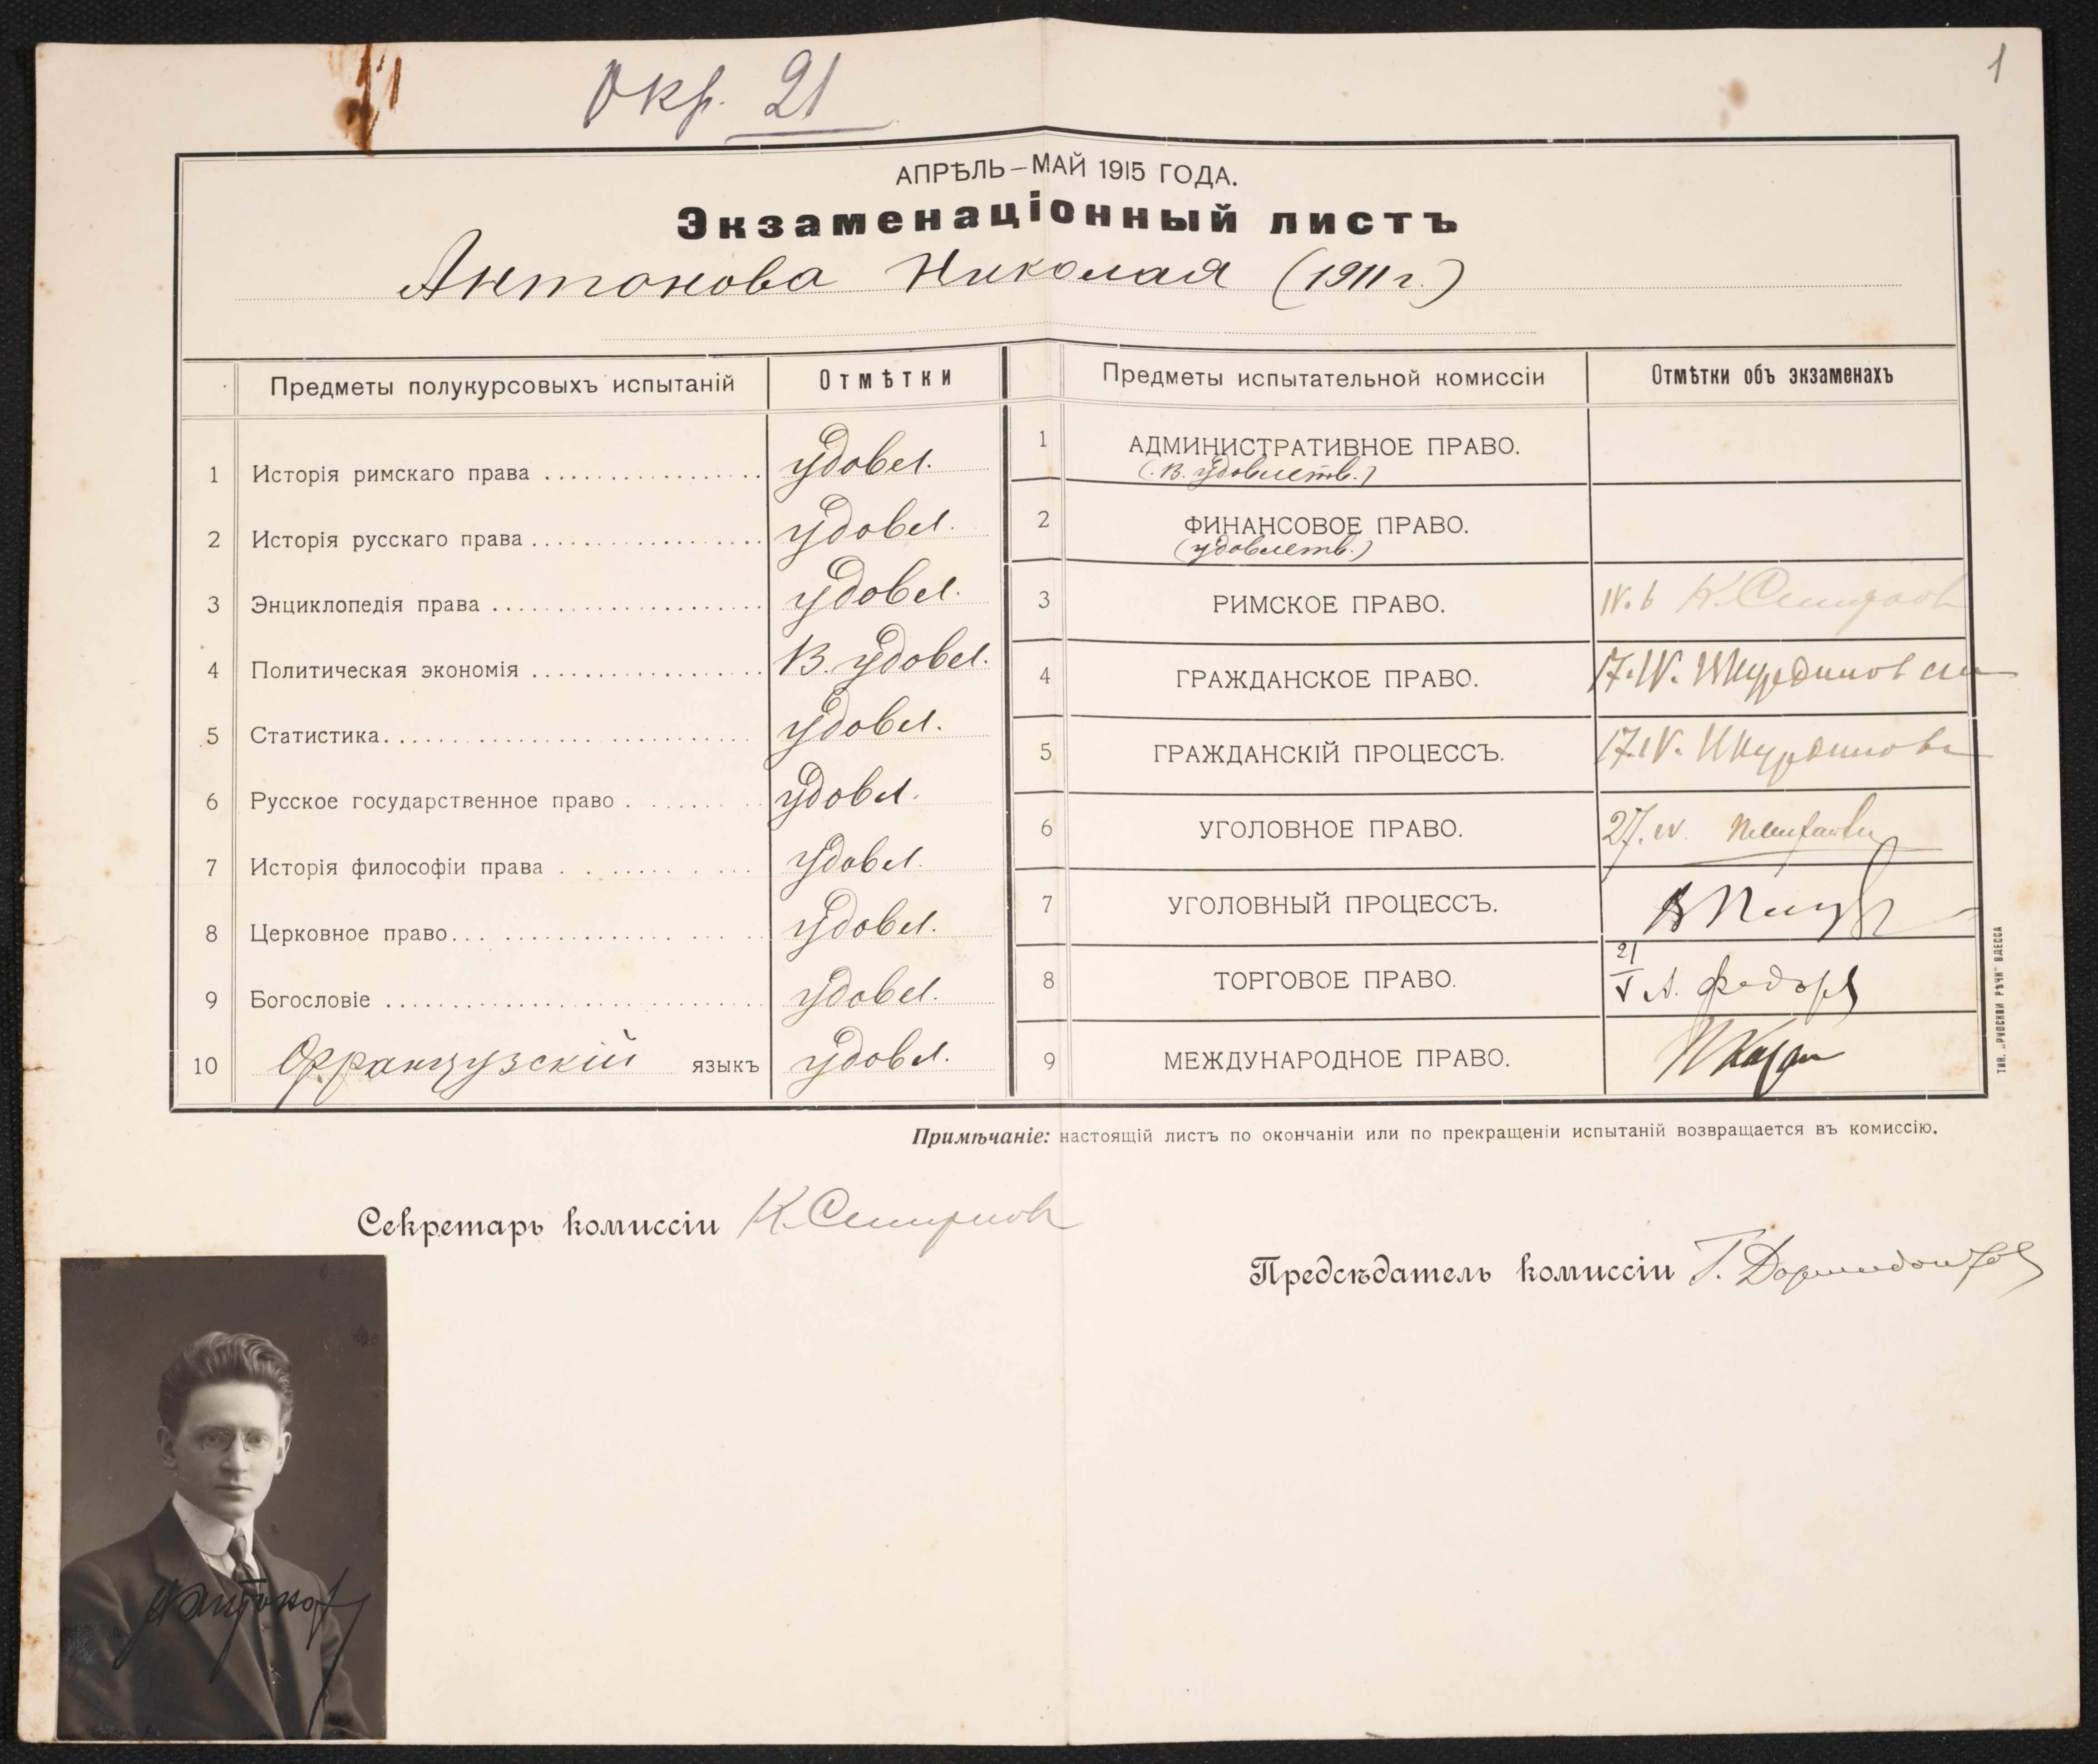 Окр. 21
1
АПРѢЛЬ – МАЙ 1915 ГОДА.
Экзаменаціонный листъ
Антонова Николая (1911 г.)
Предметы полукурсовыхъ испытаній
Отмѣтки
1 Исторія римскаго права удовл.
2 Исторія русскаго права удовл.
3 Энциклопедія права удовл.
4 Политическая экономія В. удовл.
5 Статистика удовл.
6 Русское государственное право удовл.
7 Исторія философіи права удовл.
8 Церковное право удовл.
9 Богословіе удовл.
10 Французскій языкъ удовл.
Предметы испытательной комиссіи
Отмѣтки объ экзаменахъ
1 АДМИНИСТРАТИВНОЕ ПРАВО.
(В. удовлетв.)
2 ФИНАНСОВОЕ ПРАВО.
(удовлетв.)
3 РИМСКОЕ ПРАВО. К. Смирнов
4 ГРАЖДАНСКОЕ ПРАВО. 17.IV.
5 ГРАЖДАНСКІЙ ПРОЦЕССЪ. 17.IV.
6 УГОЛОВНОЕ ПРАВО. 27.IV.
7 УГОЛОВНЫЙ ПРОЦЕССЪ.
8 ТОРГОВОЕ ПРАВО. 21/V А. Федоров
9 МЕЖДУНАРОДНОЕ ПРАВО.
ТИП. „РУССКОЙ РѢЧИ" ОДЕССА
Примѣчаніе: настоящій листъ по окончаніи или по прекращеніи испытаній возвращается въ комиссію.
Секретарь комиссіи К. Смирнов
Предсѣдатель комиссіи Г. Дормидонтов
Н Антонов